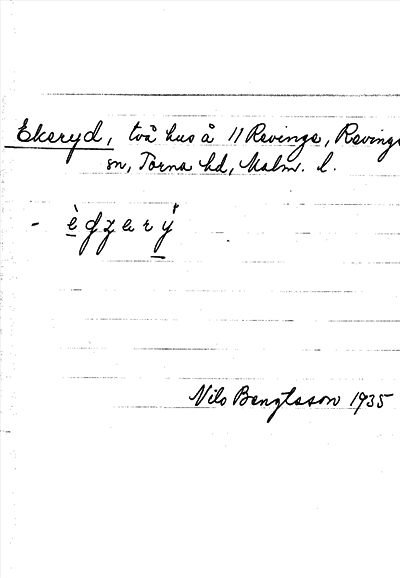 Ekeryd, två hus å 11 Revinge, Revinge
sn, Torna hd, Malm. l.
Nils Bengtsson 1935